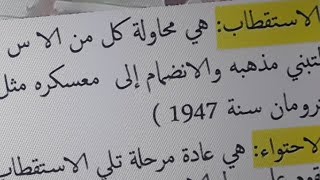 الاستقطاب: هي محاولة كل من الا س
لتبني مذهبه والانضمام إلى معسكره مثل
ترومان سنة 1947 )
الاحتواء: هي عادة مرحلة تلي الاستقطاب